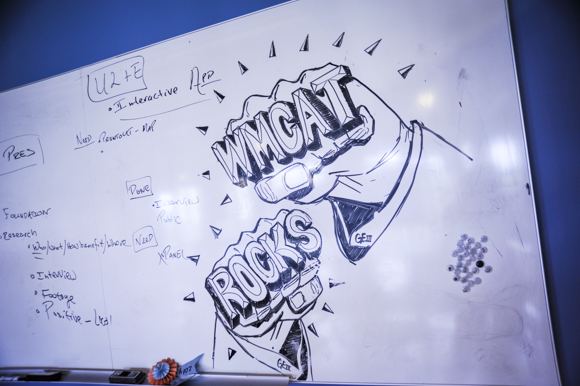 U2+E
• Interactive App
Need Printout - Map
Pres
Foundation
Research
Who/What/How benefit/Where
• Interview
• Footage
• Positive -
Done
• Interview
Need
Panel
WMCAT
GEIII
ROCKS
GEIII